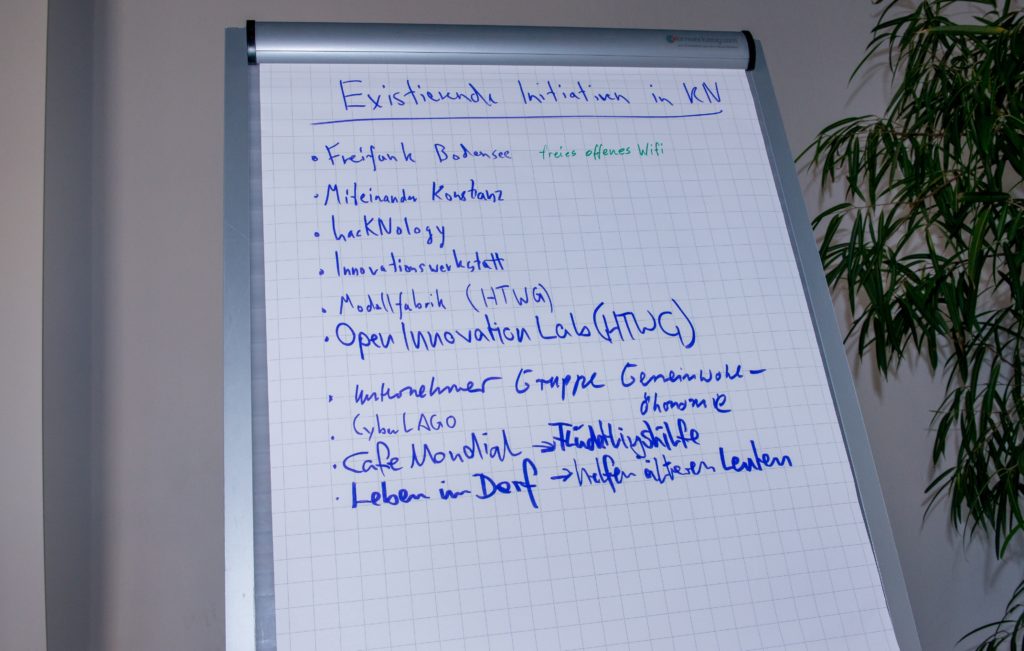 Existierende Initiativen in KN
• Freifunk Bodensee freies offenes Wifi
• Miteinander Konstanz
• hacKNology
• Innovationswerkstatt
• Modellfabrik (HTWG)
• Open Innovation Lab (HTWG)
• Unternehmer Gruppe Gemeinwohl-
ökonomie
• CyberLAGO
• Cafe Mondial → Flüchtlingshilfe
• Leben im Dorf → helfen älteren Leuten